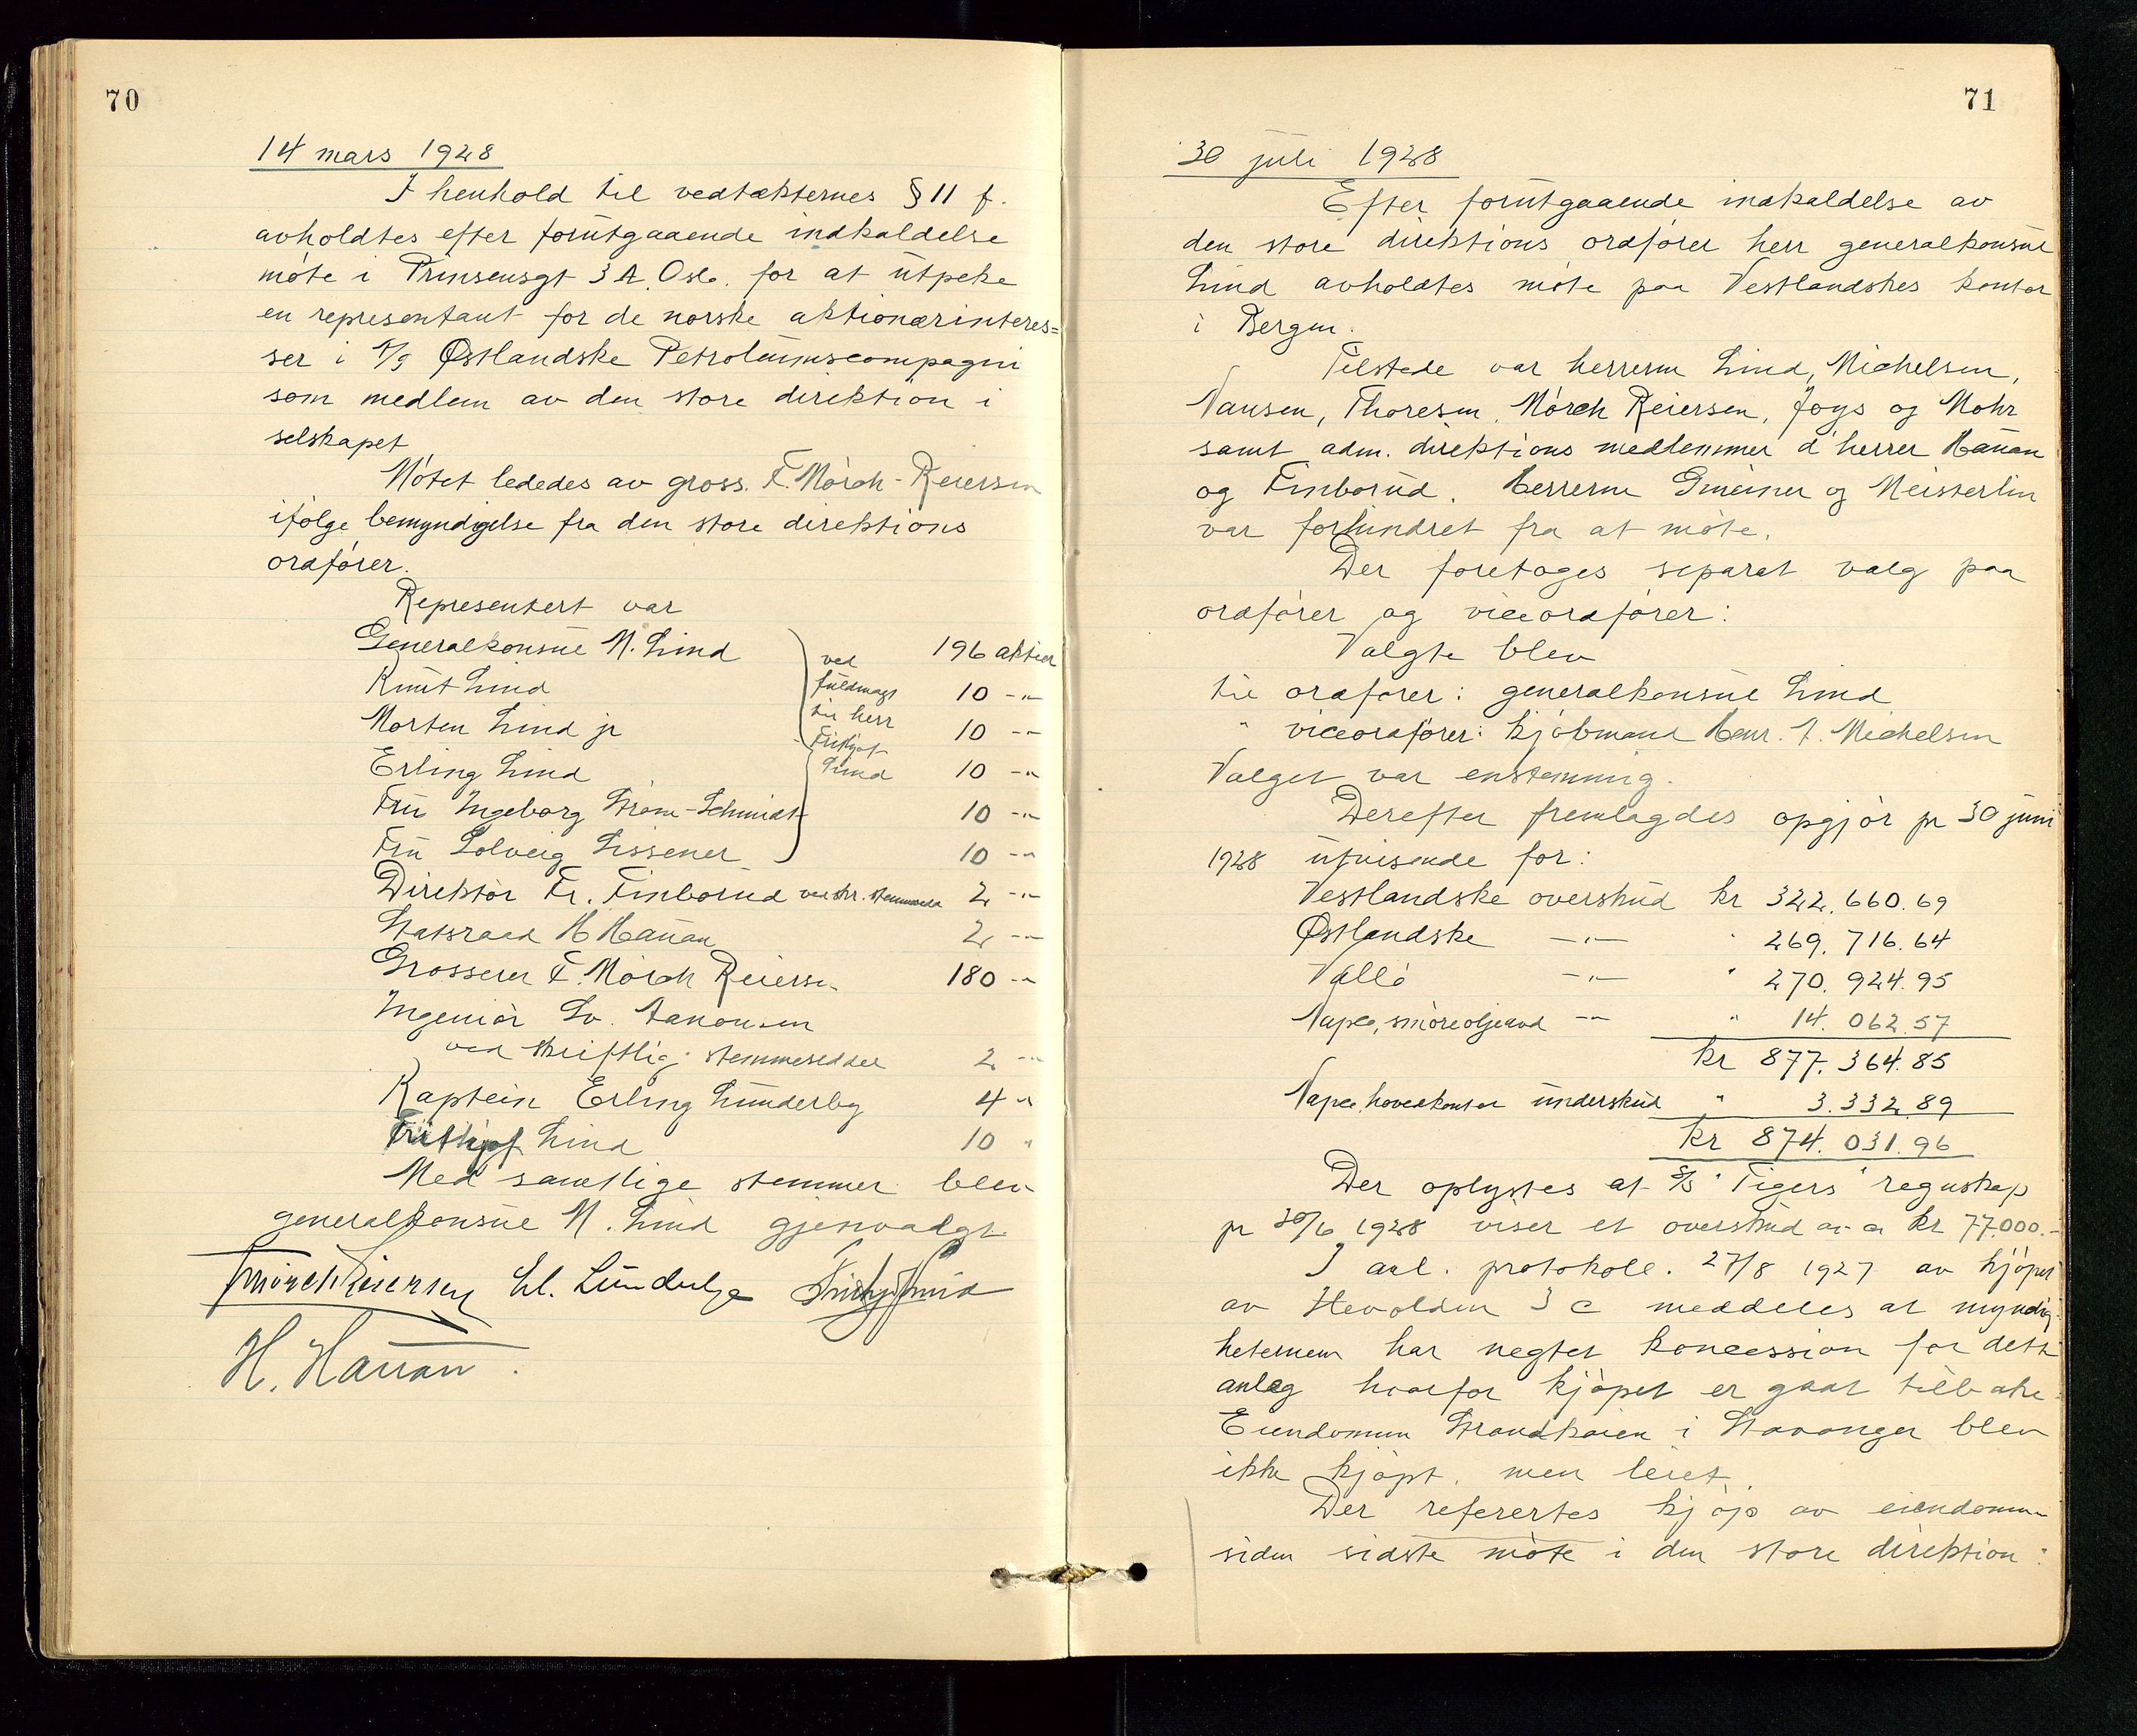 70
14 mars 1928
I henhold til vedtækternes § 11 f.
avholdtes efter forutgaaende indkaldelse
møte i Prinsensgt 3 A, Oslo, for at utpeke
en representant for de norske aktionærinteres=
ser i A/S Østlandske Petroleumscompagni
som medlem av den store direktion i
selskapet
Møtet lededes av gross. F. Mørch-Reiersen
ifølge bemyndigelse fra den store direktions
ordfører.
Representert var
Generalkonsul M. Lind 196 aktier
Knut Lind 10 -"-
Morten Lind jr 10 -"-
Erling Lind 10 -"-
Fru Ingeborg Strøm-Schmidt 10 -"-
Fru Solveig Lissener 10 -"-
ved
fuldmagt
til herr
Frithjof
Lind
Direktør Fr. Finborud ved skr. stemmesed. 2 -"-
Statsraad H Hauan 2 -"-
Grosserer F. Mørch Reiersen 180 -"-
Ingeniør Sv. Aanonsen
ved skriftlig stemmeseddel 2 -"-
Kaptein Erling Lunderby 4 "
Frithjof Lind 10 "
Med samtlige stemmer blev
generalkonsul M. Lind gjenvalgt
F Mørch Reiersen Erl. Lunderbye Frithjof Lind
H. Hauan.
71
30 juli 1928
Efter forutgaaende indkaldelse av
den store direktions ordfører herr generalkonsul
Lind avholdtes møte paa Vestlandskes kontor
i Bergen.
Tilstede var herrerne Lind, Michelsen,
Nansen, Thoresen, Mørch Reiersen, Joys og Mohr
samt adm. direktions medlemmer d'herrer Hauan
og Finborud. Herrerne Gmeiner og Meisterlin
var forhindret fra at møte.
Der foretoges separat valg paa
ordfører og viceordfører:
Valgte blev
til ordfører: generalkonsul Lind
" viceordfører: kjøbmand Henr. J. Michelsen
Valget var enstemmig.
Derefter fremlagdes opgjør pr 30 juni
1928 utvisende for:
Vestlandske overskud kr 322.660.69
Østlandske -"- " 269.716.64
Vallø -"- " 270.924.95
Napco, smøreoljeavd -"- " 14.062.57
kr 877.364.85
Napco, hovedkontor underskud " 3.332.89
kr 874.031.96
Der oplystes at S/S "Tigers" regnskap
pr 30/6 1928 viser et overskud av ca kr 77.000.-
I anl. protokoll. 27/8 1927 av kjøpet
av Hevolden 3 c meddeles at myndig-
heterne har negtet koncession for dette
anlæg hvorfor kjøpet er gaat tilbake.
Eiendommen Strandkaien i Stavanger blev
ikke kjøpt, men leiet.
Der refererfes kjøp av eiendomme
siden sidste møte i den store direktion: